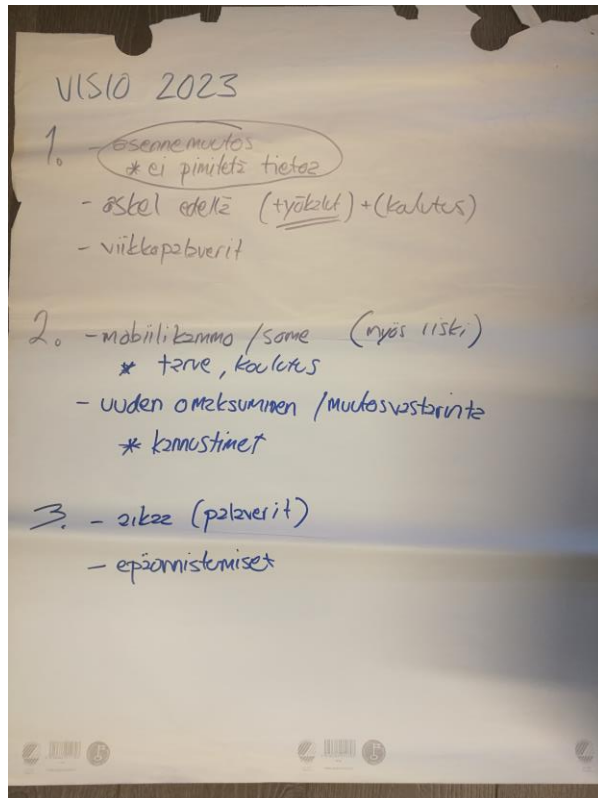 VISIO 2023
1. - asennemuutos
* ei pimitetä tietoa
- askel edellä (työkalut) + (koulutus)
- viikkopalaverit
2. - mobiilikammo / some (myös riski)
* tarve, koulutus
- uuden omaksuminen / muutosvastarinta
* kannustimet
3. - aikaa (palaverit)
- epäonnistumiset